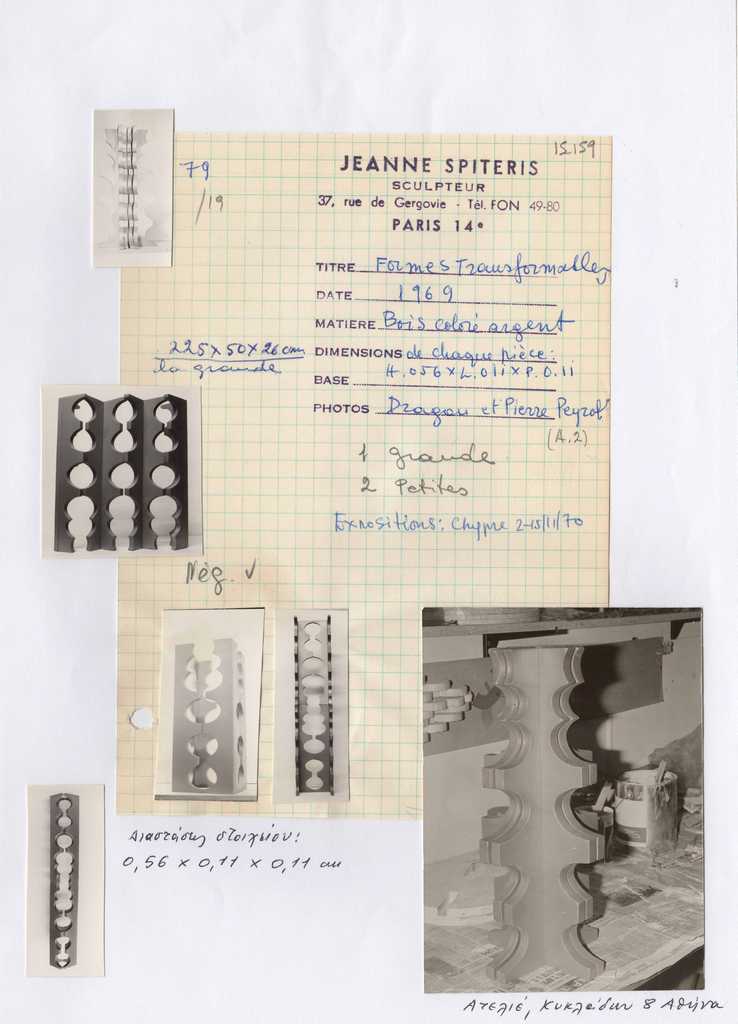 15.159
79
/19
JEANNE SPITERIS
SCULPTEUR
37, rue de Gergovie - Tél. FON 49-80
PARIS 14e
TITRE Formes Transformables
DATE 1969
MATIERE Bois coloré argent
225 x 50 x 26 cm
la grande
DIMENSIONS de chaque pièce:
H. 056 x L. 011 x P. 0.11
BASE
PHOTOS Dragan et Pierre Peyrol
(A.2)
1 grande
2 Petites
Expositions: Chypre 2-15/11/70
Nég. √
Διαστάσεις στοιχείου:
0,56 x 0,11 x 0,11 cm
Ατελιέ, Κυκλάδων 8 Αθήνα